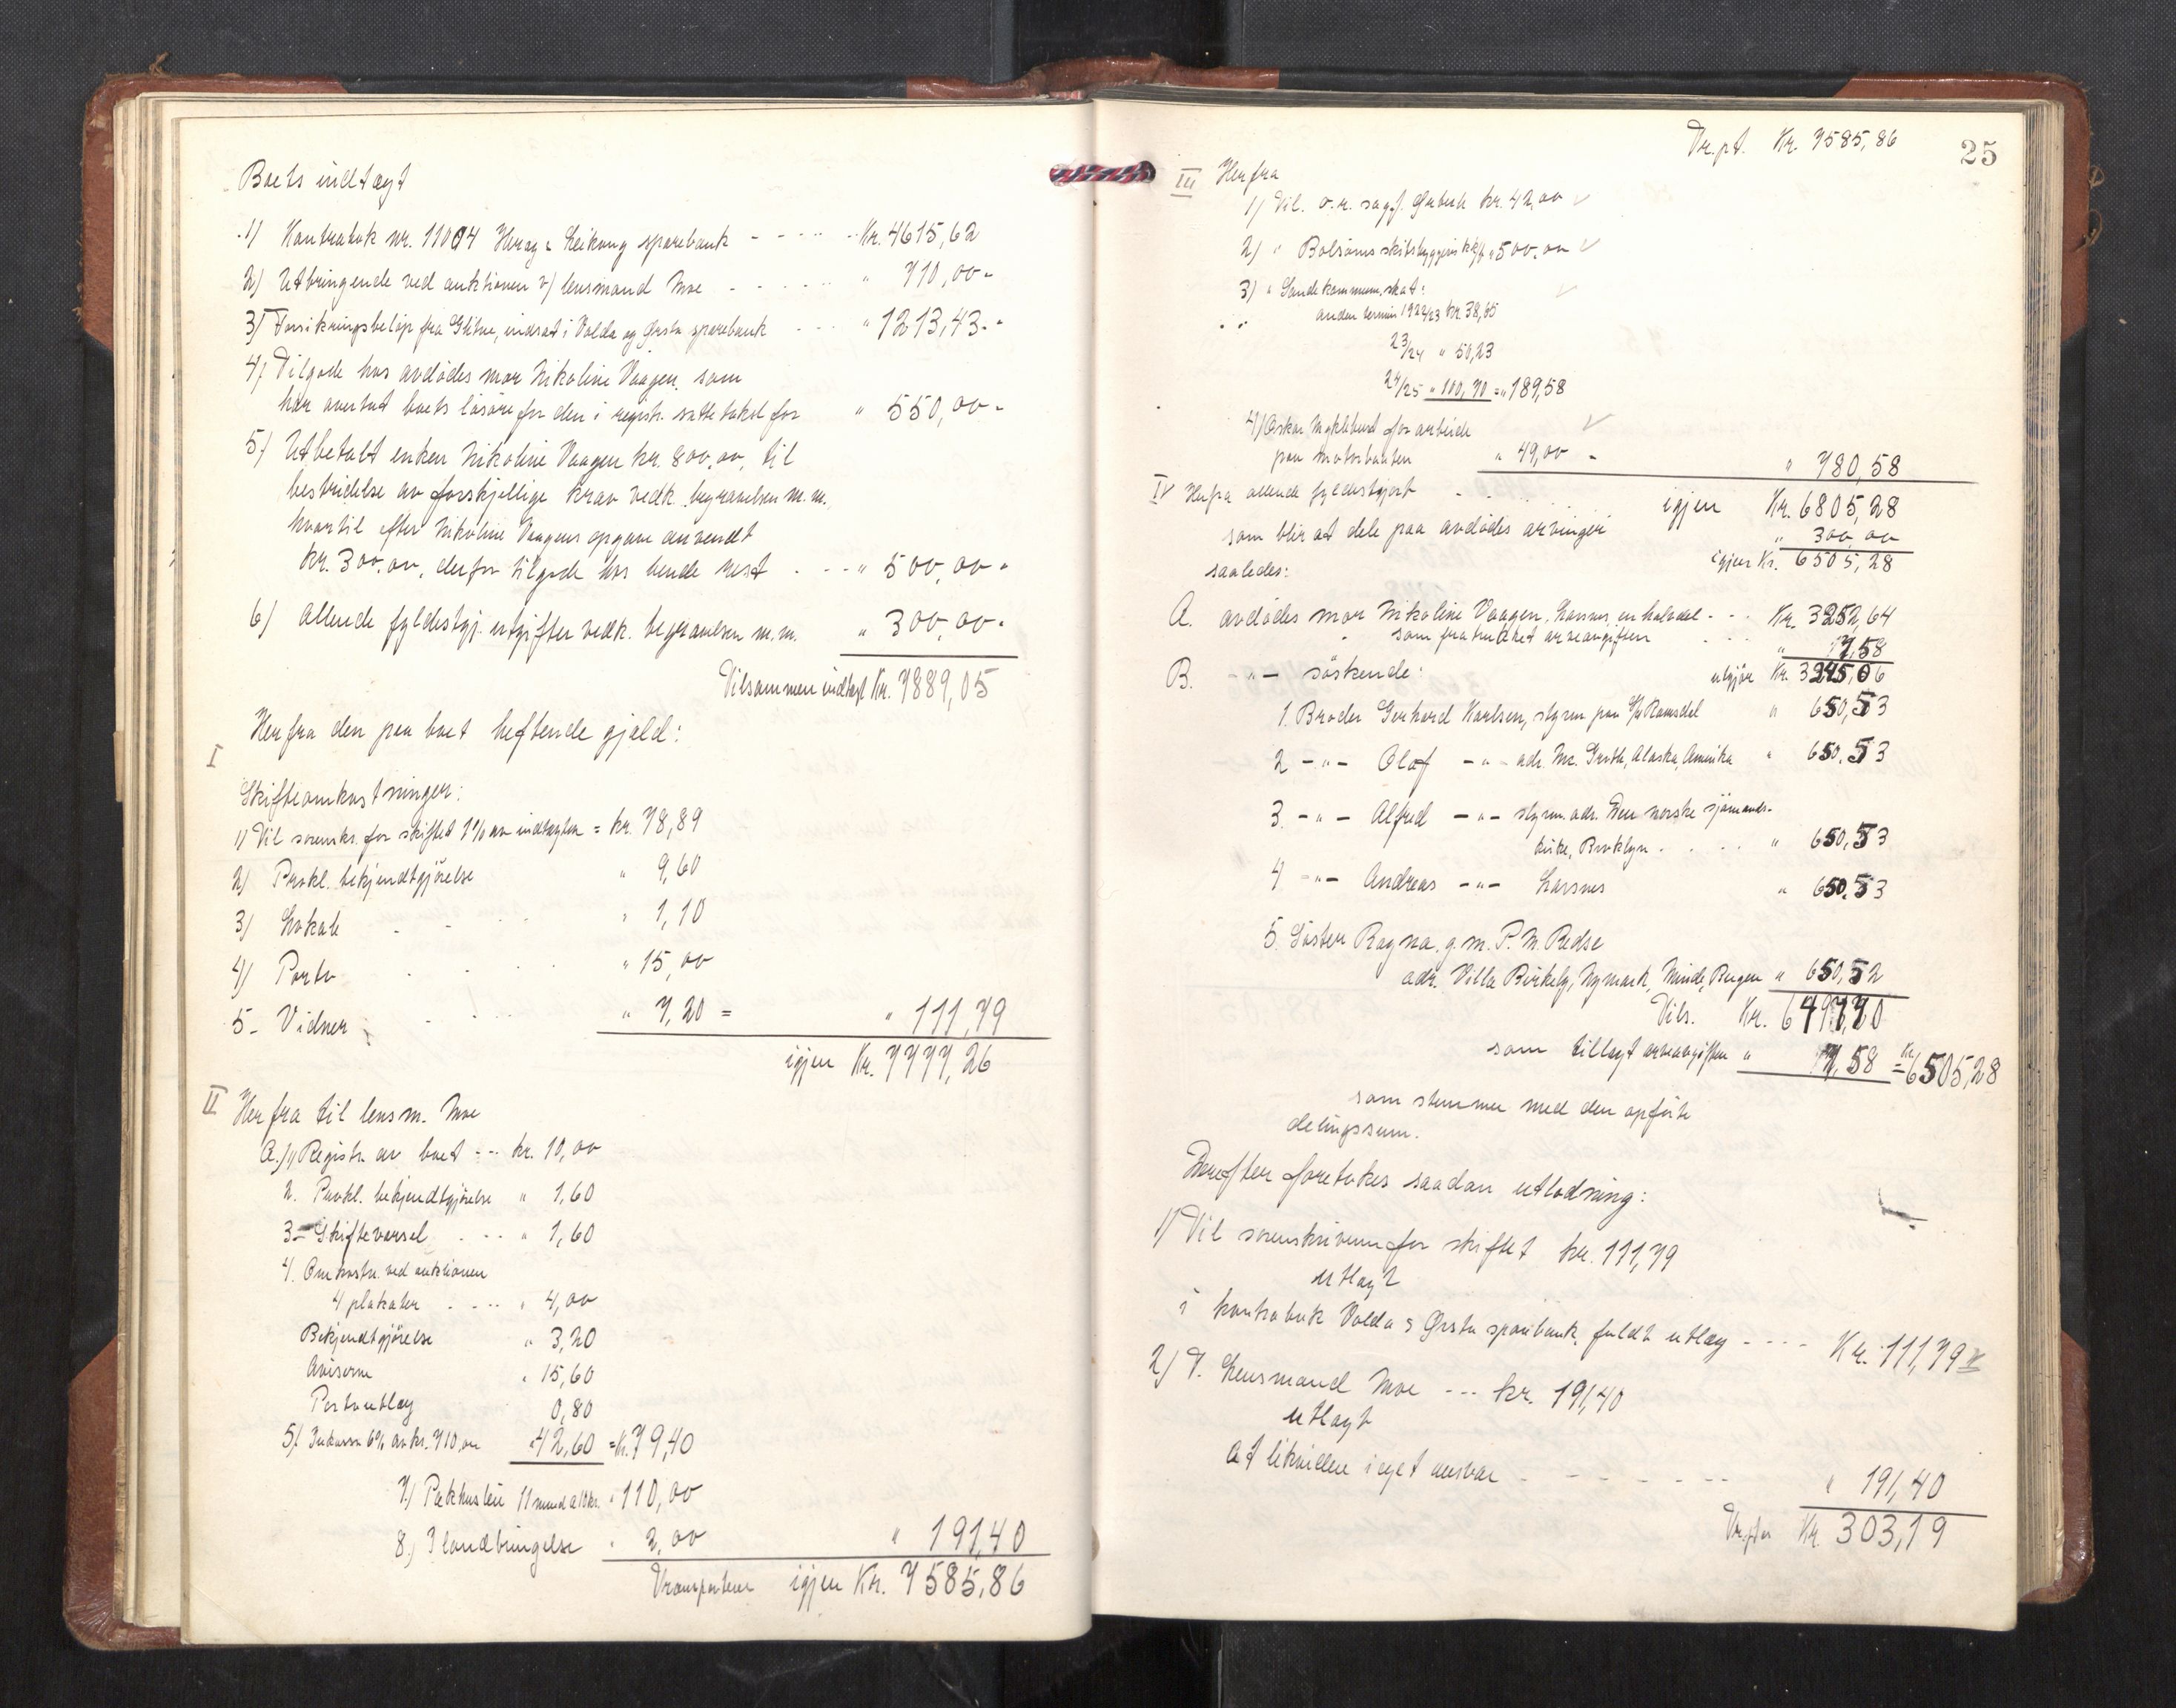 Boets indtægt
1) Kontrabok nr. 11004 Herøy & Leikong sparebank - - - - Kr. 4615,62
2) Utbringende ved auktionen v/ lensmand Moe - - - - - " 710,00 -
3) Forsikringsbeløp fra Glitne, indsat i Volda og Ørsta sparebank - - - " 1213,43 -
4) Tilgode hos avdødes mor Nikoline Vaagen, som
har overtat boets løsøre for den i registr. satte takst for " 550,00 -
5) Utbetalt enken Nikoline Vaagen kr. 800,00, til
bestridelse av forskjellige krav vedk. begravelsen m.m.,
hvortil efter Nikoline Vaagens opgave anvendt
kr. 300,00, derfor tilgode hos hende rest - - - " 500,00 -
6) Allerede fyldestgj. utgifter vedk. begravelsen m.m. " 300,00 -
Tilsammen indtægt Kr. 7889,05
I Herfra den paa boet heftende gjæld:
Skifteomkostninger:
1) Til sorenskr. for skiftet 1% av indtægten = kr. 78,89
2) Prokl. bekjendtgjørelse " 9,60
3) Lokale - - " 1,10
4) Porto - - - " 15,00
5 - Vidner - - " 7,20 = " 111,79
igjen Kr. 7777,26
II Herfra til lensm. Moe
A.) 1) Registr. av boet - - - kr. 10,00
2. Prokl. bekjendtgjørelse " 1,60
3 = Skiftevarsel - - - " 1,60
4). Omkostn. ved auktionen
4 plakater - - - - " 4,00
Bekjendtgjørelse " 3,20
Aviserne " 15,60
Portoutlæg 0,80
5). Inkasso 6% av kr. 710,00 " 42,60 = Kr. 79,40
7.) Pakhusleie 11 mnd a 10 kr. " 110,00
8.) Ilandbringelse " 2,00 " 191,40
Transporteres igjen Kr. 7585,86
25
Tr.pt. Kr. 7585,86
III Herfra
1) Til o.r. sagf. kr. 42,00
2) " Bolsønes skibsbyggeri " 500,00
3) " Sande kommune, skat:
anden termin 1922/23 kr. 38,65
23/24 " 50,23
24/25 " 100,70 = " 189,58
4) Oskar Myklebust for arbeide
paa motorbaaten " 49,00 - " 780,58
IV Herfra allerede fyldestgjort - - - igjen Kr. 6805,28
" 300,00
som blir at dele paa avdødes arvinger igjen Kr. 6505,28
saaledes:
A. Avdødes mor Nikoline Vaagen, Larsnes, en halvdel - - - Kr. 3252,64
som fratrukket arveavgiften - - - " 7,58
utgjør Kr. 3245,06
B. - " - søskende:
1. Broder Gerhard Karlsen, styrm. paa S/S Ramsdal " 650,53
2 - " - Olaf - " - adr. Alaska, Amerika " 650,53
3. - " - Alfred - " - styrm. adr. Den norske sjømands-
kirke, Broklyn - - - " 650,53
4 - " - Andreas - " - Larsnes " 650,53
5. Søster Ragna, g.m. P. M. Redse
adr. Villa Birkely, Nymark, Minde, Bergen " 650,52
Tils. Kr. 6497,70
som tillagt arveavgiften " 7,58 = Kr. 6505,28
som stemmer med den opførte
delingssum.
Derefter foretokes saadan utlodning:
1) Til sorenskriveren for skiftet kr. 111,79
utlagt
i kontrabok Volda & Ørsta sparebank, fuldt utlæg - - - - Kr. 111,79
2) T. Lensmand Moe - - - kr. 191,40
utlagt
At likvidere i eget ansvar - - - - - - - " 191,40
Tr.ftes Kr. 303,19